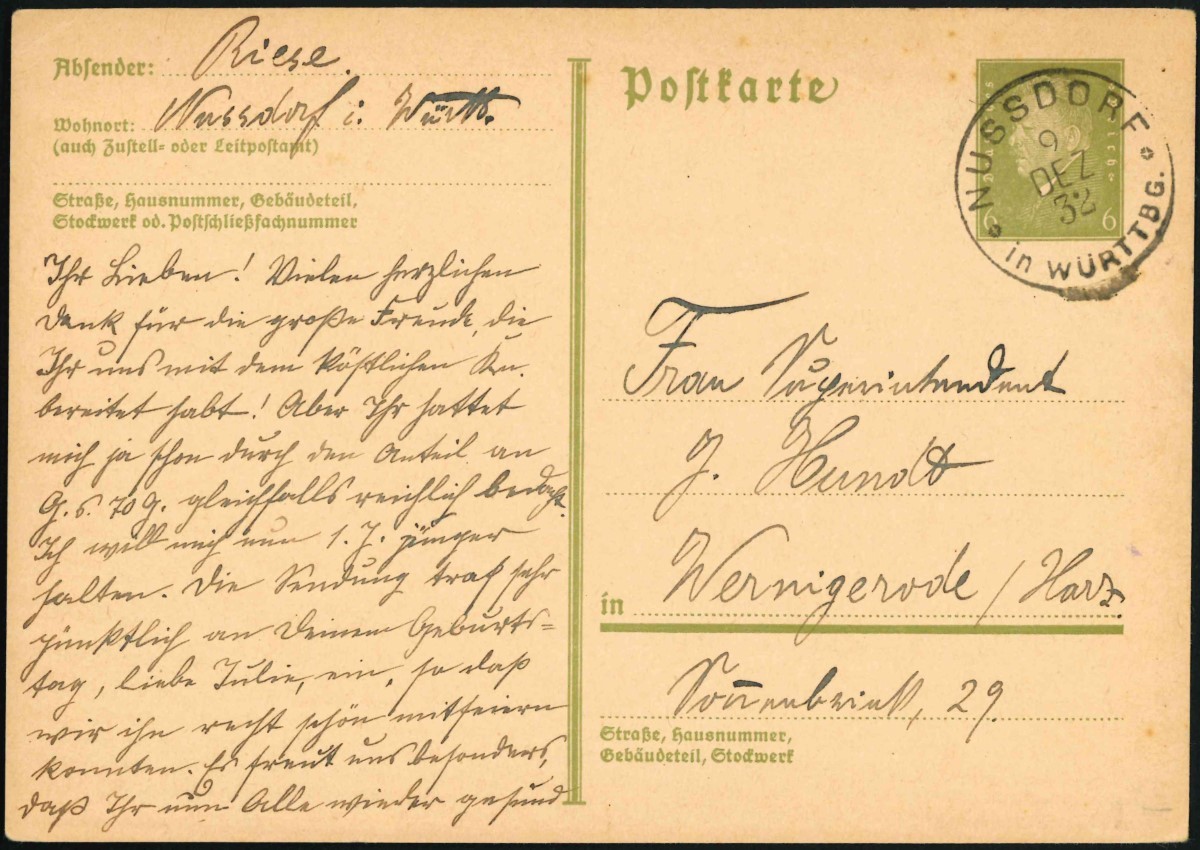 Absender: Riese.
Wohnort: Nussdorf i. Württ.
(auch Zustell- oder Leitpostamt)
Straße, Hausnummer, Gebäudeteil,
Stockwerk od. Postschließfachnummer
Ihr Lieben! Vielen herzlichen
Dank für die große Freude, die
Ihr uns mit dem köstlichen Kn.
bereitet habt! Aber Ihr hattet
mich ja schon durch den Anteil an
G. s. 70 G. gleichfalls reichlich bedacht.
Ich will mich nun 1. J. jünger
halten. Die Sendung traf sehr
pünktlich an Deinem Geburts=
tag, liebe Julie, ein, so daß
wir ihn recht schön mitfeiern
konnten. Es freut uns besonders,
daß Ihr nun Alle wieder gesund
Postkarte
6 6
NUSSDORF
9
DEZ
32
in WÜRTTBG.
Frau Superintendent
J. Hundt
in Wernigerode / Harz
Sonnenbrink, 29
Straße, Hausnummer,
Gebäudeteil, Stockwerk